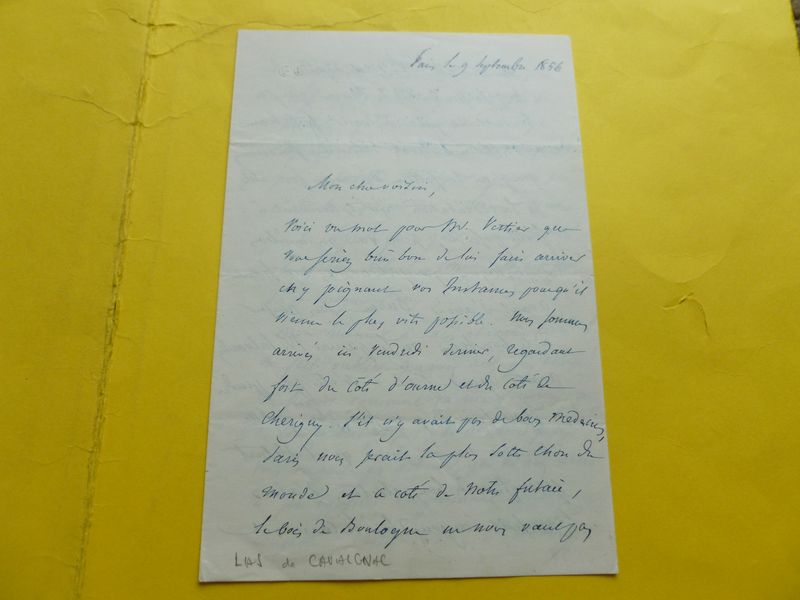 Paris le 9 septembre 1856
Mon cher voisin,
Voici un mot pour Mr. Vettier que
vous seriez bien bon de lui faire arriver
en y joignant vos Instances pour qu'il
vienne le plus vite possible. Nous sommes
arrivés ici Vendredi dernier, regardant
fort du côté d'ourne et du côté de
Cherigny. S'il n'y avait pas de bons médecins,
Paris nous serait la plus sotte chose du
monde et à côté de notre futaie,
le bois de Boulogne ne nous vaut pas
LAS de CAVAIGNAC